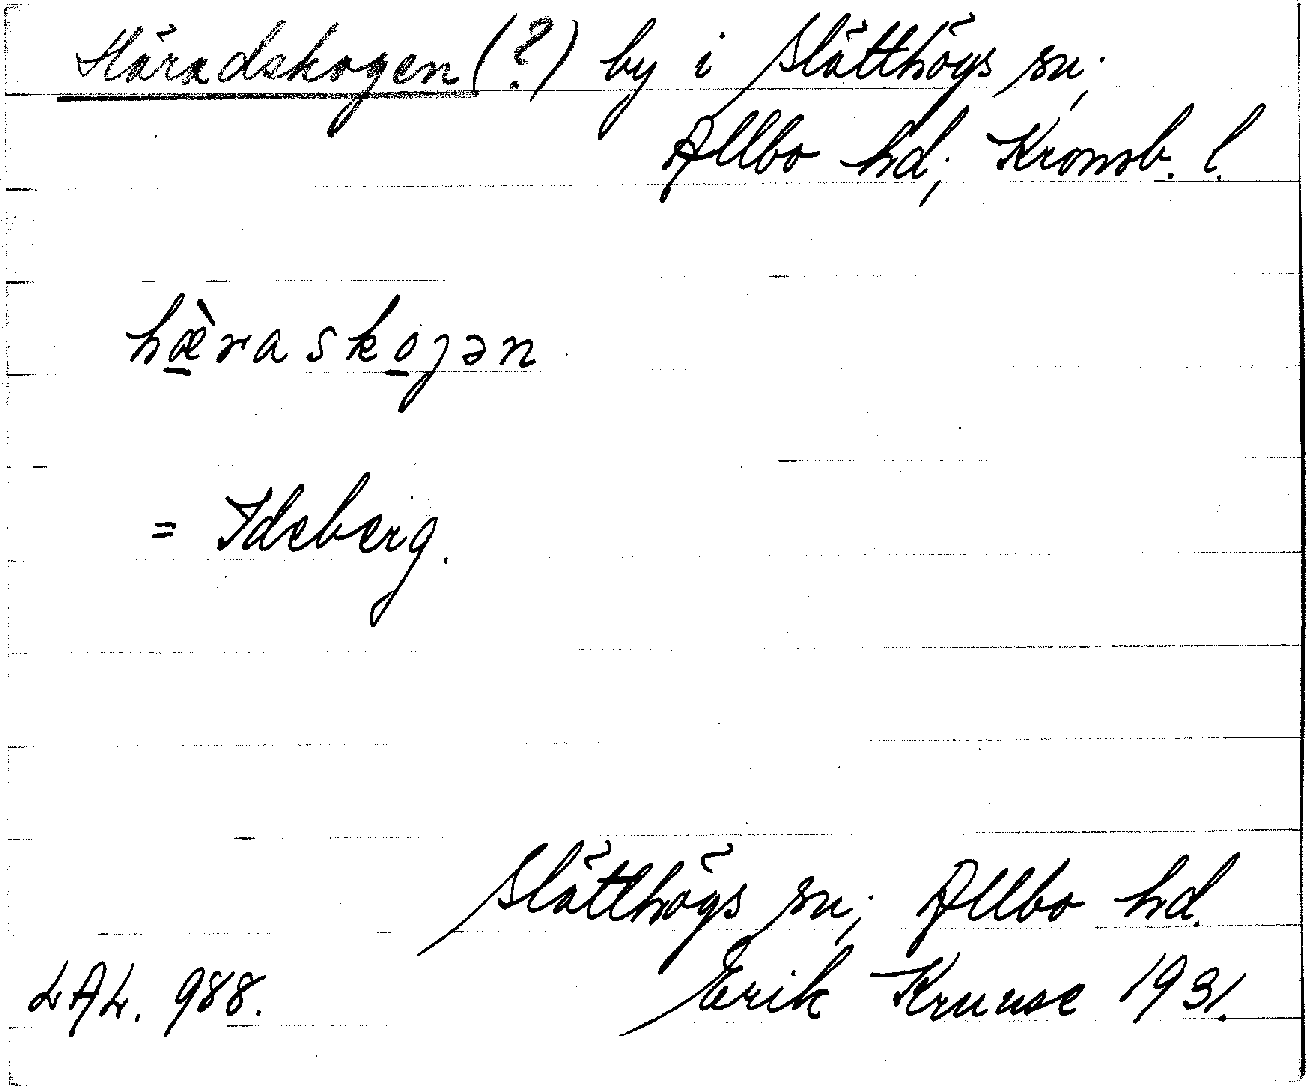 Häradskogen (?) by i Slätthögs sn;
Allbo hd; Kronob. l.
hæ̀raskoȷən
= Ideberg.
Slätthögs sn; Allbo hd.
LAL. 988. Erik Kruuse 1931.